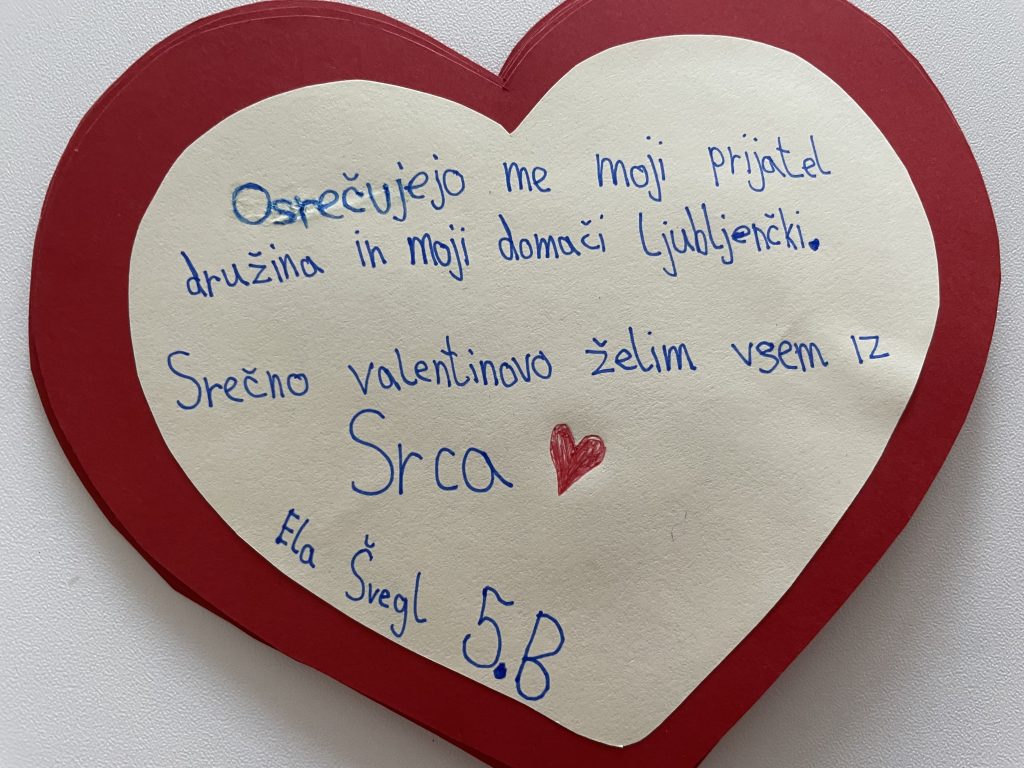 Osrečujejo me moji prijatel
družina in moji domači ljubljenčki.
Srečno valentinovo želim vsem iz
Srca
Ela Švegl 5.B